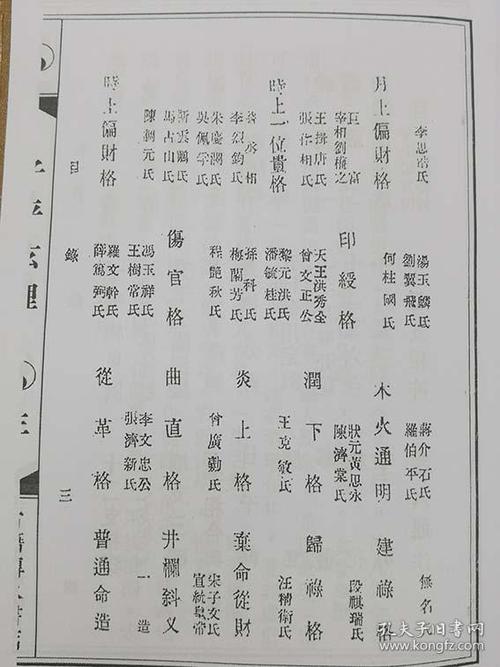 李思浩氏
湯玉麟氏
劉翼飛氏
何柱國氏
蔣介石氏
羅伯平氏
無名氏
月上偏財格 木火通明 建祿格
巨富
宰和劉之
印綬格
狀元黃思永
陳濟棠氏
段祺瑞氏
王揖唐氏
張作相氏
天王洪秀全
曾文正公
潤下格 歸祿格
時上一位貴格
黎元洪氏
潘毓桂氏
王克敏氏
汪精衛氏
李烈鈞氏
孫科氏
梅蘭芳氏
炎上格 棄命從財
朱慶瀾氏
吳佩孚氏
程艷秋氏
曾廣勷氏
宋子文氏
宣統皇帝
靳雲鵬氏
馬占山氏
傷官格 曲直格 井欄斜叉
陳調元氏
馮玉祥氏
王樹常氏
李文忠公
張濟新氏
一造
時上偏財格
羅文幹氏
薛篤弼氏
從革格 普通命造
目錄 三
子平玄理
孔夫子旧书网
www.kongfz.com